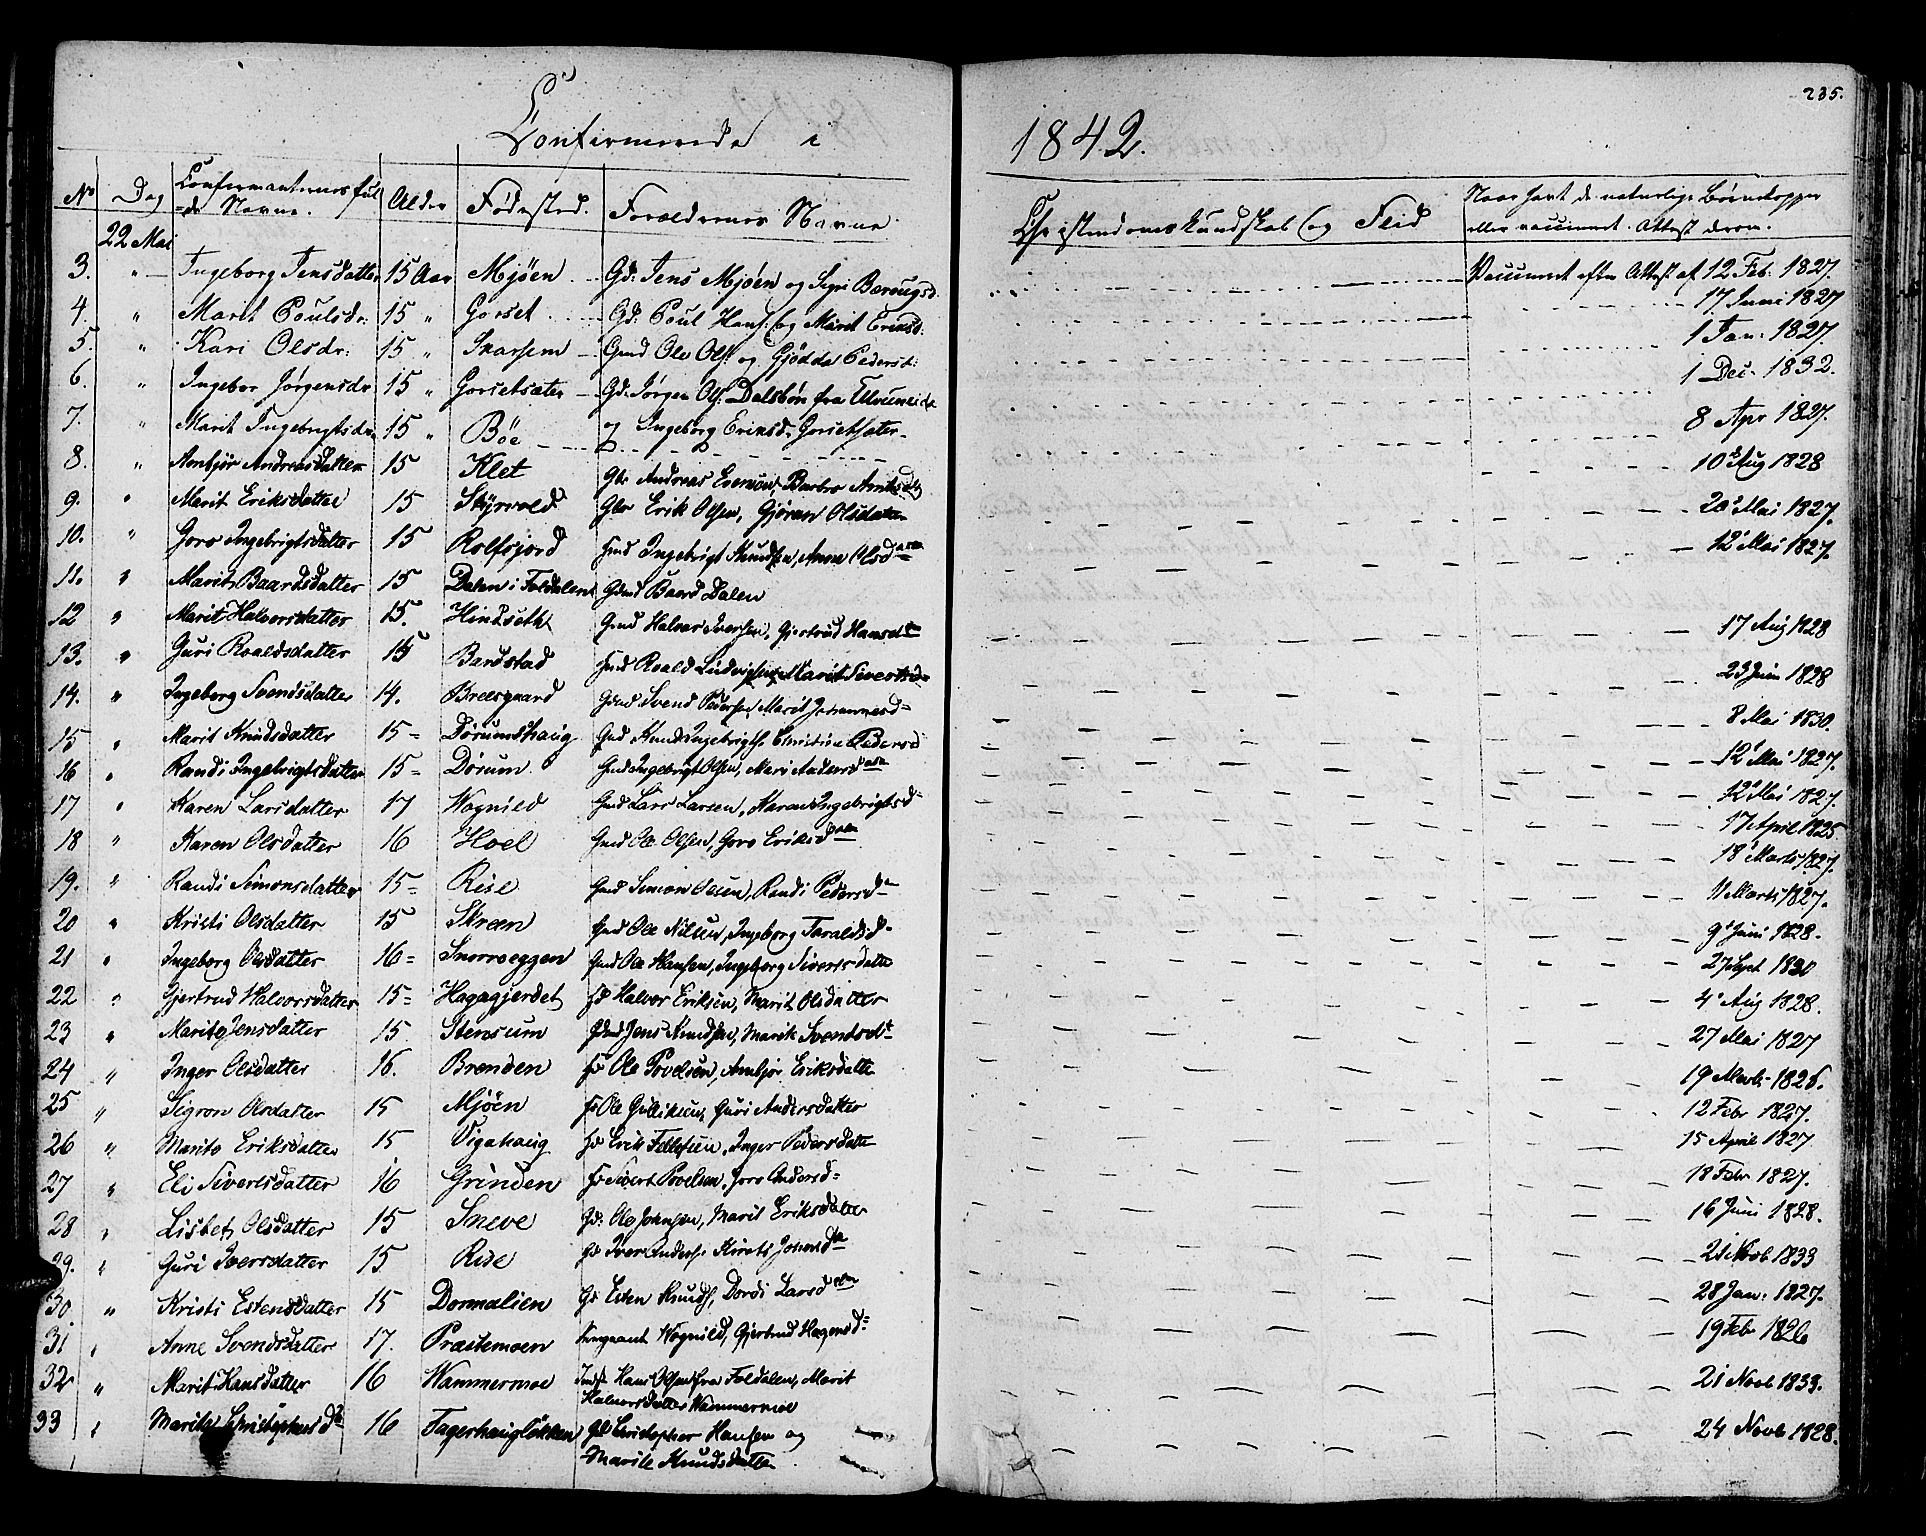 235.
Confirmerede i 1842.
No Dag Confirmanternes ful- Alder Fødested. Forældrenes Navne Christendomskundskab og Flid Naar havt de naturlige Børnekopper
de Navne. eller vaccineret. Attest derom.
22 Mai
3. " Ingeborg Jensdatter 15 Aar Mjøen Gd. Jens Mjøen og Sigri Vaccineret efter Attest af 12 Feb. 1827.
4. " Marit Poulsdr. 15 " Gorset Gd. Poul Hans. og Marit Eriksd. 17 Juni 1827
5. " Kari Olsdr: 15 " Skarsem Gmd Ole Ols. og Gjødde Pedersd. 1 Jan. 1827.
6. " Ingebor Jørgensdr 15 " Gorsetsæter Gd. Jørgen Ols. Dalsbøn fra 1 Dec. 1832.
og Ingeborg Eriksd. Gorsetsæter
7. " Marit Ingebrigtsdr 15 " Böe 8 Apr 1827.
8. " Annbjør Andreasdatter 15 Klet Gbr Andreas Barbro 10 Aug 1828
9. " Marit Eriksdatter 15 Skyrvold Gbr Erik Olsen, Gjøran Olsdatter 20 Mai 1827.
10. " Goro Ingebrigtsdatter 15 Rolfsjord Hmd Ingebrigt Knudsen, Anne Olsd 12 Mai 1827.
11. " Marit Baardsdatter 15 Dalen i Foldalen Gdmd Baard Dalen
12 " Marit Halvorsdatter 15. Hindseth Gmd Halvor Iversen, Gjertrud Hansdt 17 Aug 1828
13. " Guri Roaldsdatter 15 Bardstad Hmd Roald Ludvigsen, Marit Sivertsd 23 Juni 1828
14. " Ingeborg Svendsdatter 14. Breesgaard Gdmd Svend Pedersen, Marit Johannesd 8 Mai 1830.
15 " Marit Knudsdatter 15 Dørumshaug Gmd Knud Ingebrigts. Christine Pedersd 12 Mai 1827.
16 " Randi Ingebrigtsdatter 15 Dørum Gmd Ingebrigt Olsen, Mari Andersd 12 Mai 1827.
17 " Karen Larsdatter 17 Wognild Gmd Lars Larsen, Karen Ingebrigtsd 17 April 1825
18 " Karen Olsdatter 16 Hoel Gmd Ole Olsen, Goro Eriksd 18 Marts 1827.
19. " Randi Simonsdatter 15 Rise Gmd Simon Olsen, Randi Pedersd 11 Marts 1827.
20 " Kristi Olsdatter 15 Skreen Gmd Ole Nilsen, Ingeborg Taraldsd 9 Juni 1828.
21 " Ingeborg Olsdatter 16 Snorroeggen Gmd Ole Hansen, Ingeborg Sivertsdatte 27 Sept 1830
22 " Gjertrud Halvorsdatter 15 Hagagjerdet Hd Halvor Eriksen, Marit Olsdatter 4 Aug 1828.
23 " Marit Jensdatter 15 Stensum Gmd Jens Knudsen, Marit Svendsdt 27 Mai 1827
24 " Inger Olsdatter 16. Brenden Hd Ole Povelsen, Annbjør Eriksdatte 19 Marts 1826.
25 " Sigron Olsdatter 15 Mjöen Hd Ole Gulliksen, Guri Andersdatter 12 Febr 1827.
26 " Marit Eriksdatter 15 Vigahaug Hd Erik Inger Pedersdatte 15 April 1827.
27 " Eli Sivertsdatter 16 Grinden Hd Sivert Povelsen, Goro Andersd 18 Febr 1827.
28 " Lisbet Olsdatter 15 Sneve Gd. Ole Johnsen, Marit Eriksdatter 16 Juni 1828.
29. " Guri Iversdatter 15 Rise Gd Iver Anders. Kirsti Johnsd 21 Novb 1833
30. " Kristi Estensdatter 15 Dörmalien Gd Esten Knuds, Dordi Larsd 28 Jan. 1827.
31 " Anne Svendsdatter 17. Præstemoen Sergeant Wognild, Gjertrud Hagensd 19 Febr 1826
32 " Marit Hansdatter 16 Wammermoe Hans Olsen fra Foldalen, Marit 21 Novb 1833.
Halvorsdatter Wammermoe
33 " Marit Christophersd 16 Fagerhaugløkken Gd Christopher Hansen og 24 Novb 1828.
Marit Knudsdatter